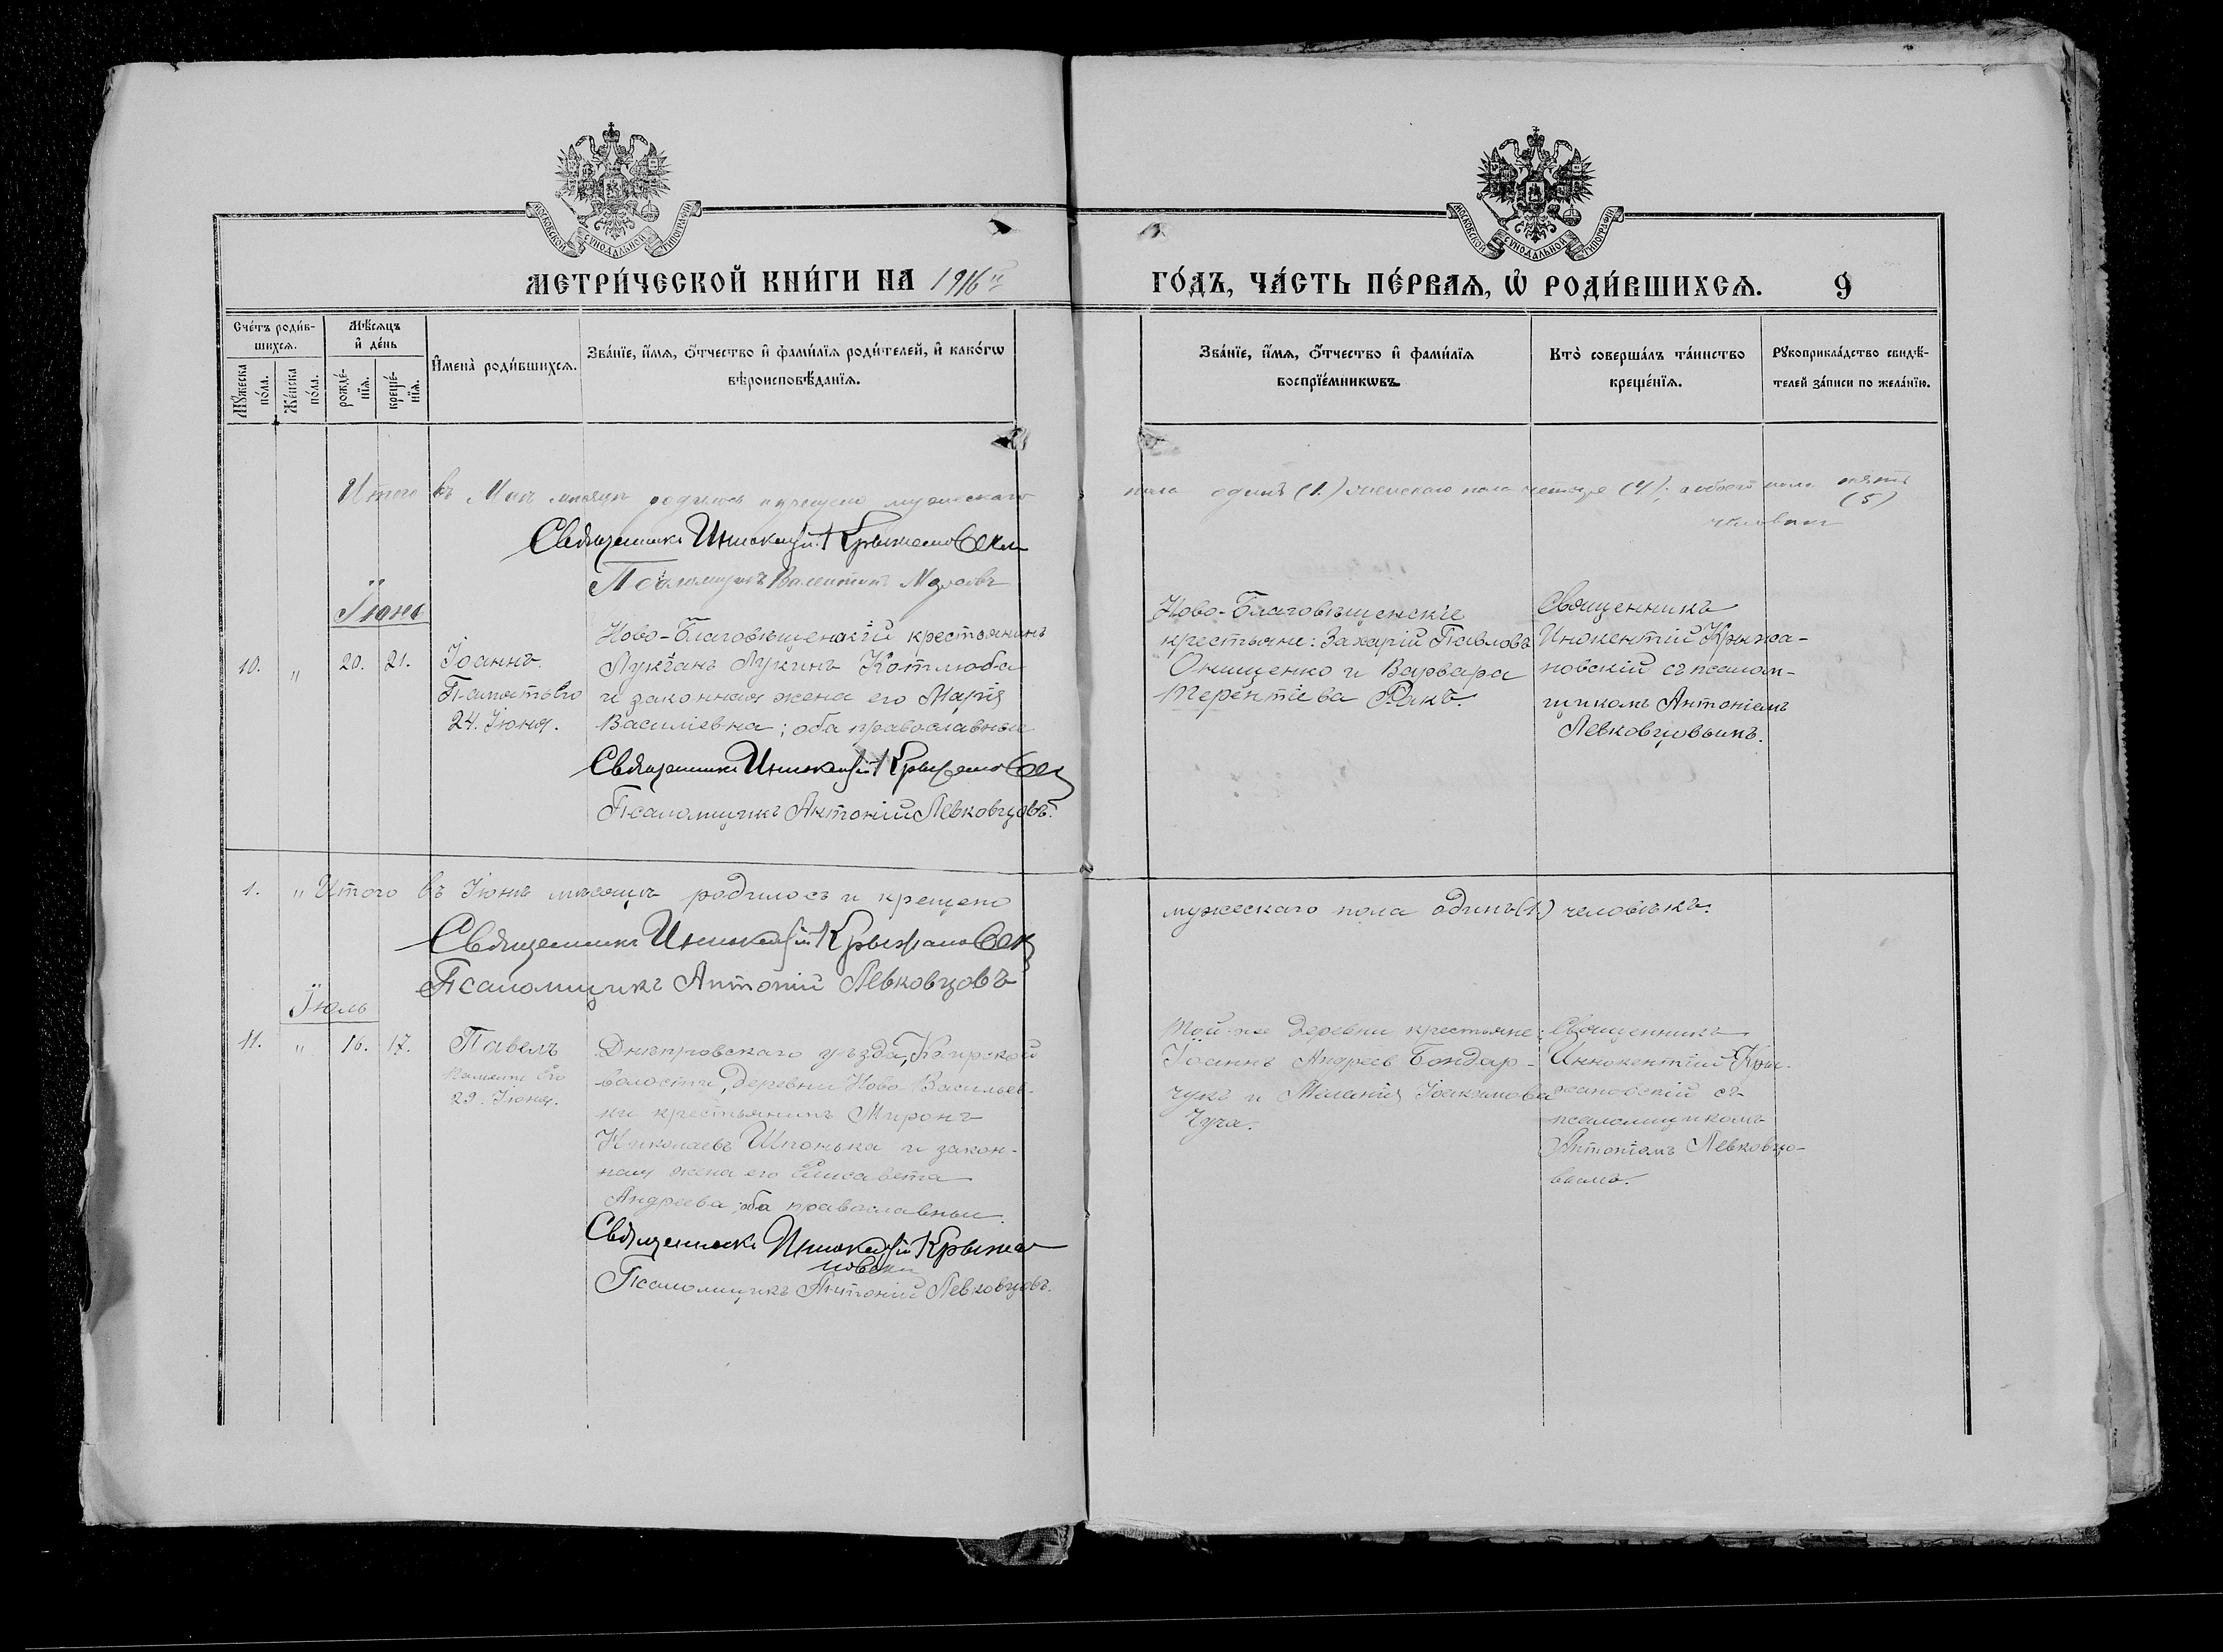 МОСКОВСКОЙ СѴНОДАЛЬНОЙ ТИПОГРАФІИ
МОСКОВСКОЙ СѴНОДАЛЬНОЙ ТИПОГРАФІИ
МЕТРИ́ЧЕСКОЙ КНИ́ГИ НА 1916й ГО́ДЪ, ЧА́СТЬ ПЕ́РВАѦ, Ѡ҆ РОДИ́ВШИХСѦ. 9
Сче́тъ роди́в-
шихсѧ.
Мꙋ́жеска по́ла.
Же́нска по́ла.
Мѣ́сѧцъ
и҆ де́нь
рожде́-
нїѧ.
креще́-
нїѧ.
И҆мена̀ роди́вшихсѧ.
Зва́нїе, и҆́мѧ, ѻ҆́тчество и҆ фами́лїѧ роди́телей, и҆ како́гѡ
вѣроисповѣ́данїѧ.
Зва́нїе, и҆́мѧ, ѻ҆́тчество и҆ фами́лїѧ
воспрїе́мникѡвъ.
Кто̀ соверша́лъ та́инство
креще́нїѧ.
Рꙋкоприкла́дство свидѣ́-
телей за́писи по жела́нїю.
Итого въ Маѣ мѣсяцѣ родилось и крещено мужескаго
пола одинъ (1.) женскаго пола четыре (4.); обоего пола пять
(5)
человѣкъ
Священникъ Инокентій Крыжановскій
Псаломщикъ Валентинъ
Іюнь
10. " 20. 21.
Іоаннъ.
Память Его
24. Іюня.
Ново-Благовѣщенскій крестьянинъ
Лукіанъ Лукинъ Котлюба
и законная жена его Марія
Василіевна; оба православные
Священникъ Инокентій Крыжановскій
Псаломщикъ Антоній Левковцовъ.
Ново-Благовѣщенскіе
крестьяне: Захарій Павловъ
Онищенко и Варвара
Терентіева Ракъ.
Священникъ
Инокентій Крыжа-
новскій съ псалом-
щикомъ Антоніемъ
Левковцовымъ.
1. " Итого въ Іюнѣ мѣсяцѣ родилось и крещено
мужескаго пола одинъ (1.) человѣкъ.
Священникъ Инокентій Крыжановскій
Псаломщикъ Антоній Левковцовъ
Іюль
11. " 16. 17.
Павелъ
Память Его
29. Іюня.
Днѣпровскаго уѣзда, Каирской
волости, деревни Ново Васильев-
ки крестьянинъ Миронъ
Николаевъ Шпонька и закон-
ная жена его Елисавета
Андреева; оба православные.
Священникъ Инокентій Крыжа
новскій
Псаломщикъ Антоній Левковцовъ.
Той-же деревни крестьяне:
Іоаннъ Андреевъ Бондар-
чукъ и Меланія Іоакимова
Чуча.
Священникъ
Иннокентій Кры-
жановскій съ
псаломщикомъ
Антоніемъ Левковцо-
вымъ.